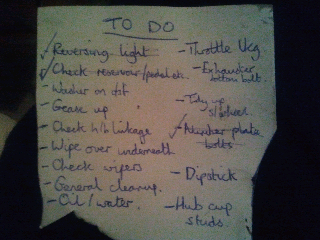 TO DO
Reversing light
Check reservoir/pedal etc.
Washer on
Grease up
Check h/b linkage
Wipe over underneath
Check wipers
General cleanup.
Oil/water.
- Throttle
- Exhauster
bottom bolt
- Tidy up
s/wheel
- Number plate
bolts
- Dipstick
- Hub cup
studs.